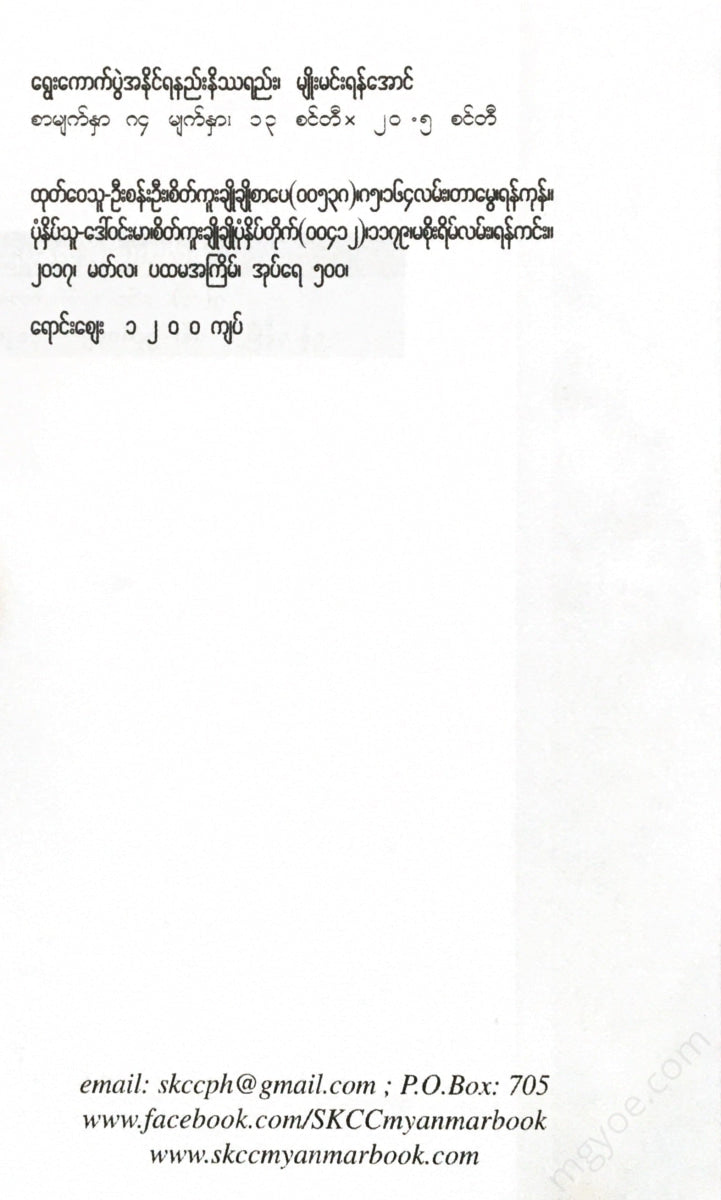 ရွေးကောက်ပွဲအနိုင်ရနည်းနိဿရည်း၊ မျိုးမင်းရန်အောင်
စာမျက်နှာ ၈၄ မျက်နှာ၊ ၁၃ စင်တီ× ၂၀.၅ စင်တီ
ထုတ်ဝေသူ-ဦးစန်းဦး၊စိတ်ကူးချိုချိုစာပေ(၀၀၅၃၈)၊၈၅၊၁၆၄လမ်း၊တာမွေ၊ရန်ကုန်။
ပုံနှိပ်သူ-ဒေါ်ဝင်းမာ၊စိတ်ကူးချိုချိုပုံနှိပ်တိုက်(၀၀၄၁၂)၊၁၁၇၉၊မစိုးရိမ်လမ်း၊ရန်ကင်း။
၂၀၁၇၊ မတ်လ၊ ပထမအကြိမ်၊ အုပ်ရေ ၅၀၀၊
ရောင်းဈေး ၁၂၀၀ ကျပ်
email: skccph@gmail.com ; P.O.Box: 705
www.facebook.com/SKCCmyanmarbook
www.skccmyanmarbook.com
mgyoe.com